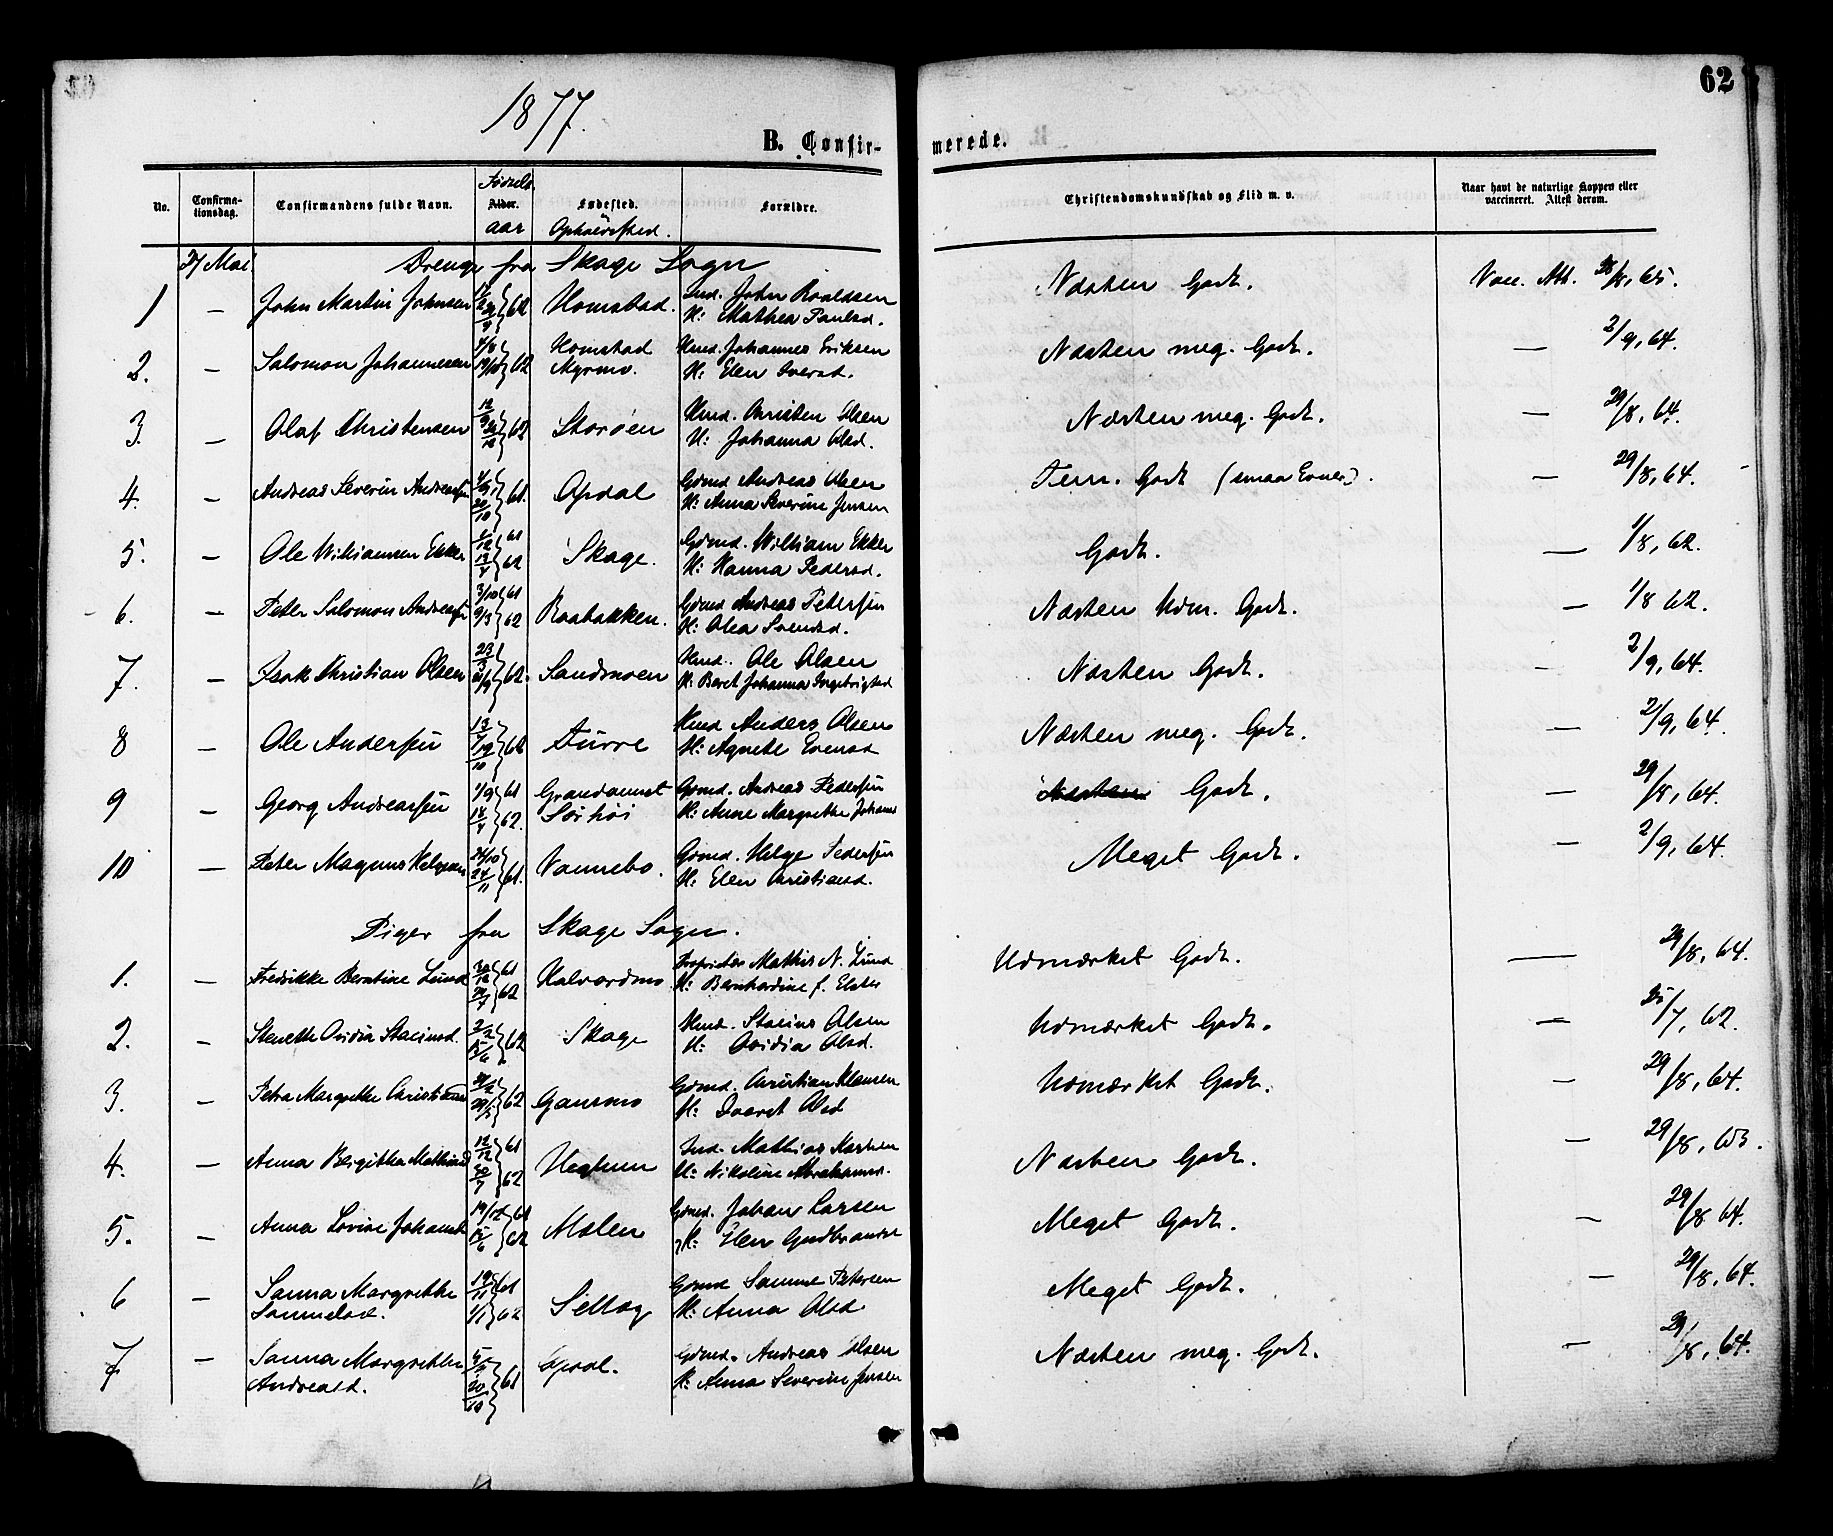 62
1877.
B. Confir-
merede.
No.
Confirma-
tionsdag.
Confirmandens fulde Navn.
Fødsels
Alder.
aar
Fødested.
Opholdssted.
Forældre.
Christendomskundskab og Flid m. v.
Naar havt de naturlige Kopper eller
vaccineret. Attest derom.
Mai
Drenge fra Skage Sogn
1 – John Martin Johnsen 62 Homstad. Ind. John Roaldsen
K: Mathea Paulsd.
Næsten Godt. Vac. Att. 65.
2. – Salomon Johannesen 62 Homstad Hmd. Johannes Eriksen
Myrmo. K: Elen Iversd.
Næsten meg. Godt. – 2/9, 64.
3. – Olaf Christensen 62 Storøen Hmd. Christen Olsen
K: Johanna Olsd.
Næsten meg. Godt. – 29/8, 64.
4. – Andreas Severin Andreassen 61. Opdal Grmd Andreas Olsen
20/10 K: Anna Severine Jensen
Tem. Godt (smaa Evner). – 29/8, 64.
5. – Ole Williamsen Ekker 61 Skage. Grmd. William Ekker
62 K: Hanna Pedersd.
Godt. – 1/8, 62.
6. – Peter Salomon Andreassen 3/10 61 Raabakken. Grmd Andreas Petersen
9/3 62 K: Olea Svendsd.
Næsten Udm. Godt. – 1/8 62.
7. – Isak Christian Olsen 62. Sandmoen Hmd. Ole Olsen
K: Beret Johanna Ingebrigtsd
Næsten Godt. – 2/9, 64.
8 – Ole Andersen Furre Hmd Anders Olsen
K: Agnete Evensd
Næsten meg. Godt. – 2/9, 64.
9 – Georg Andreassen 1/9 61 Grandaunet Grmd. Andreas Pedersen
18/4 62. Sørhøi K: Anne Margrethe Johans
Næsten Godt. – 29/8, 64.
10 – Peter Magnus Helgesen 24/11 61. Vannebo. Grmd. Helge Pedersen
K: Elen Christiansd.
Meget Godt. – 2/9, 64.
Piger fra Skage Sogn.
1. – Fredrikke Berntine Lund 61 Halvardmo Proprietær Mathis N. Lund
62 K: Bernhardine f. Elster
Udmærket Godt. – 29/8, 64.
2. – Stenette Ovidia Stacinsd. 62 Skage Hmd. Stacius Olsen
K: Ovidia Olsd.
Udmærket Godt. – /7, 62.
3. – Petra Margrethe Christiansd 62 Gansmo Grmd. Christian Klausen
K: Olsd
Udmærket Godt. – 29/8, 64.
4. – Anna Birgitha Mathisd 12/12 61 Ind. Mathias
30/7 62 K: Nikoline Abrahamsd.
Næsten Godt. – 29/8, 63.
5. – Anna Lovise Johansd 19/12 61 Molen Grmd. Johan Larsen
62 K: Elen Gudbrandsd
Meget Godt. – 29/8 64.
6 – Sanna Margrethe 19/11 61 Grmd Samuel Petersen
Samuelsd. 1/1 62 K: Anna Olsd
Meget Godt. – 29/8, 64.
7 – Sanna Margrethe Opdal. Grmd. Andreas Olsen
Andreasd. 20/10 61 K: Anna Severine Jensen
Næsten meg. Godt. – 29/8, 64.